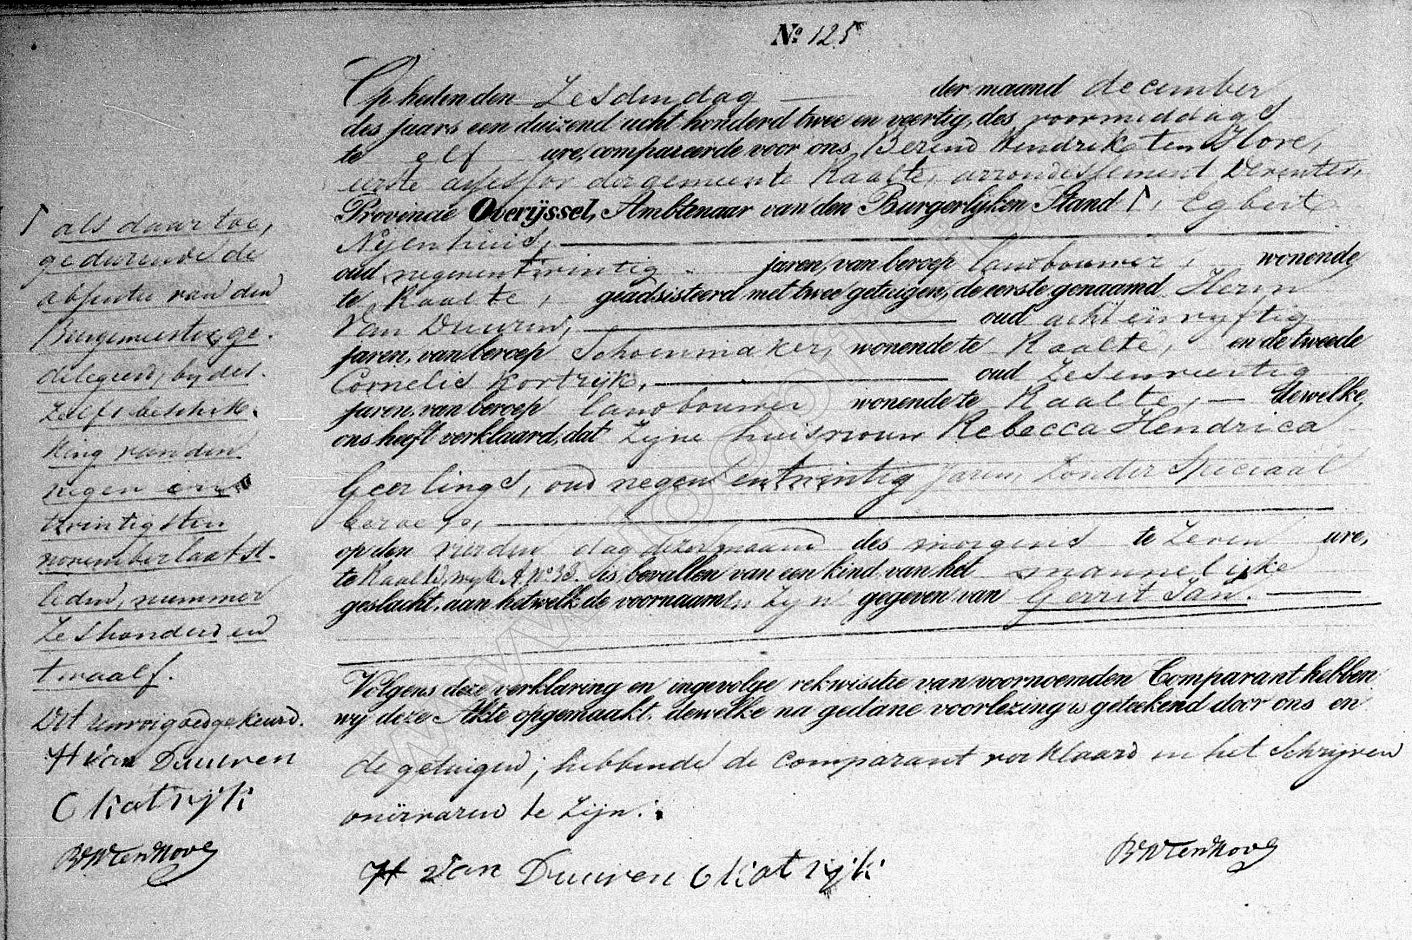 No. 125
Op heden den Zesden dag der maand december
des jaars een duizend acht honderd twee en veertig, des voormiddags
te elf ure, compareerde voor ons Berend Hendrik ten Hove,
eerste assessor der gemeente Raalte, arrondissement Deventer,
Provincie Overijssel, Ambtenaar van den Burgerlijken Stand Γ, Egbert
Nijenhuis,
oud negenentwintig jaren, van beroep landbouwer, wonende
te Raalte, geadsisteerd met twee getuigen, de eerste genaamd Harm
Van Duuren, oud acht en vyftig
jaren, van beroep Schoenmaker, wonende te Raalte, en de tweede
Cornelis Kortrijk, oud Zesenveertig
jaren, van beroep landbouwer wonende te Raalte, dewelke
ons heeft verklaard, dat Zijne huisvrouw Rebecca Hendrica
Geerlings, oud negen en twintig jaren, Zonder Speciaal
beroep,
op den vierden dag dezer maand des morgens te Zeven ure,
te Raalte, wyk A. No. 38. is bevallen van een kind van het mannelijke
geslacht, aan hetwelk de voornaamen Zijn gegeven van Gerrit Jan.
Volgens deze verklaring en ingevolge rekwisitie van voornoemden Comparant hebben
wy deze Akte opgemaakt, dewelke na gedane voorlezing is geteekend door ons en
de getuigen; hebbende de comparant verklaard in het Schrijven
onërvaren te Zijn.
H van Duuren C Kotrijk BHtenHove
Γ als daartoe,
gedurende de
absentie van den
Burgemeester, ge-
delegeerd, by des-
Zelfs beschik-
king van den
negen en
twintigsten
november laatst-
leden, nummer
Zeshonderd en
twaalf.
Dit renvoi goedgekeurd.
H van Duuren
C Kotrijk
BHtenHove